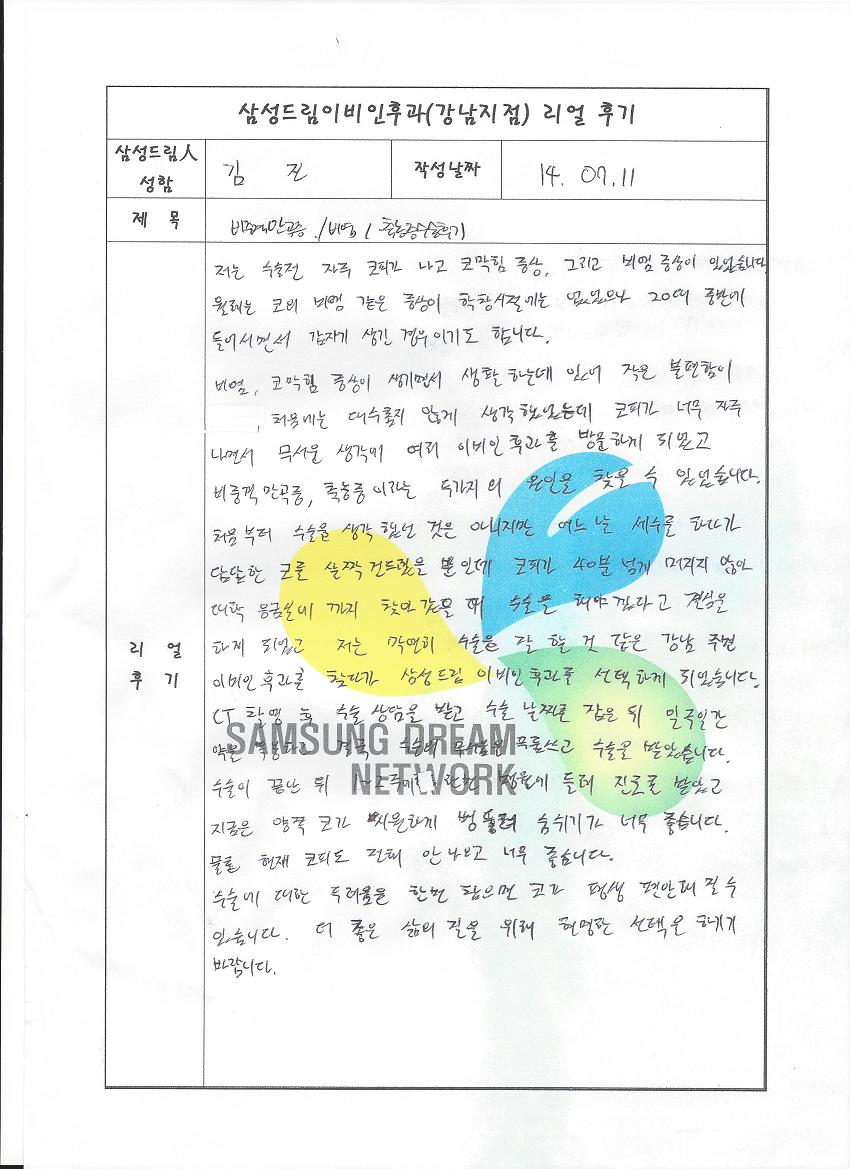 삼성드림이비인후과(강남지점) 리얼 후기
삼성드림人 성함
김 진
작성날짜
14. 07. 11
제 목
비중격만곡증 / 비염 / 축농증수술후기
리 얼 후 기
저는 수술전 자주 코피가 나고 코막힘 증상, 그리고 비염 증상이 있었습니다.
원래는 코의 비염 같은 증상이 학창시절에는 없었으나 20대 중반에
들어서면서 갑자기 생긴 경우이기도 합니다.
비염, 코막힘 증상이 생기면서 생활 하는데 있어 작은 불편함이
, 처음에는 대수롭지 않게 생각했었는데 코피가 너무 자주
나면서 무서운 생각에 여러 이비인후과를 방문하게 되었고
비중격 만곡증, 축농증 이라는 두가지의 원인을 찾을 수 있었습니다.
처음부터 수술을 생각했던 것은 아니지만 어느 날 세수를 하다가
답답한 코를 살짝 건드렸을 뿐인데 코피가 40분 넘게 멈추지 않아
대학 응급실에 까지 찾아갔을 때 수술을 해야겠다고 결심을
하게 되었고 저는 막연히 수술을 잘 할 것 같은 강남 주변
이비인후과를 찾다가 삼성드림 이비인후과를 선택하게 되었습니다.
CT 촬영 후 수술 상담을 받고 수술 날짜를 잡은 뒤 일주일간
약을 복용하고 결국 수술의 무서움을 무릅쓰고 수술을 받았습니다.
수술이 끝난 뒤 1~2주에 한번 병원에 들려 진료를 받았고
지금은 양쪽 코가 시원하게 뻥 뚫려 숨쉬기가 너무 좋습니다.
물론 현재 코피도 전혀 안나오고 너무 좋습니다.
수술에 대한 두려움을 한번 참으면 코가 평생 편안해 질 수
있습니다. 더 좋은 삶의 질을 위해 현명한 선택을 하시기
바랍니다.
SAMSUNG DREAM
NETWORK